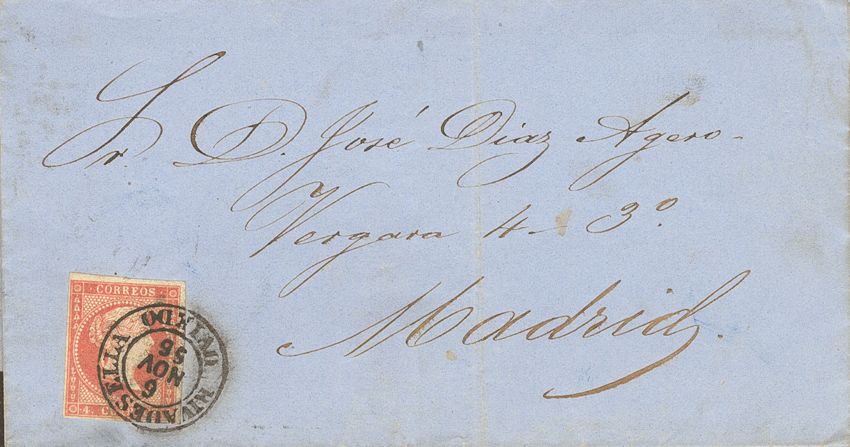 Sr. D. José Diaz Agero-
Vergara 4 - 3º
Madrid.
CORREOS
4. C
RIVADESELLA
OVIEDO
6
NOV
56